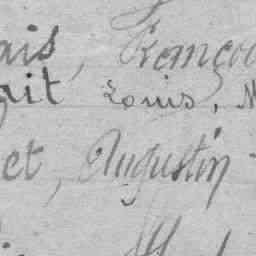 ais, Françoi
ait Louis, M
et, Augustin